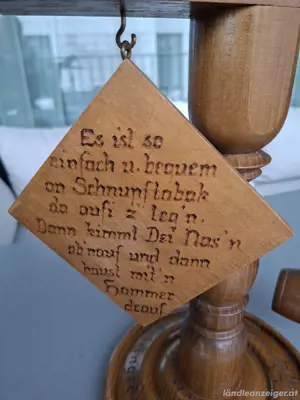 Es ist so
einfach u. bequem
an Schnupftabak
da aufi z leg'n.
Dann kimmt Dei Nas'n
ob'nauf und dann
haust mit'n
Hammer
drauf
ländleanzeiger.at